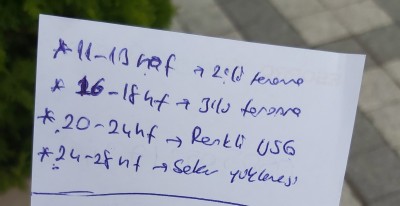 * 11-13 hf → 2'li tarama
* 16-18 hf → 3'lü tarama
* 20-24 hf → Renkli USG
* 24-28 hf → Şeker yüklemesi